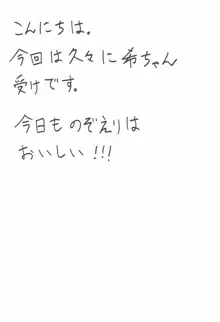 こんにちは。
今回は久々に希ちゃん
受けです。
今日ものぞえりは
おいしい!!!